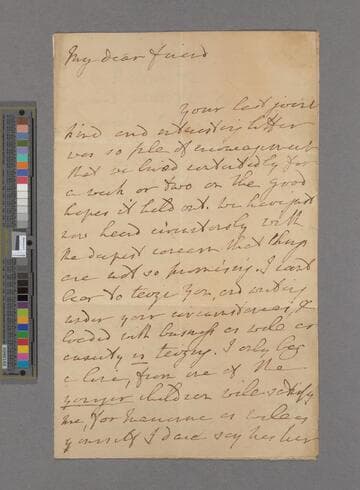 My dear friend
Your last joint
kind and interesting letter
was so full of encouragement
that we lived contentedly for
a week or two on the good
hopes it held out. We have just
now heard circuitously with
the deepest concern that things
are not so promising. I can't
bear to teaze you, and writing
under your circumstances, &
loaded with business as well as
anxiety is teazing. I only beg
a line, from one of the
younger children will satisfy
me, for Madame as well as
yourself I dare say has her